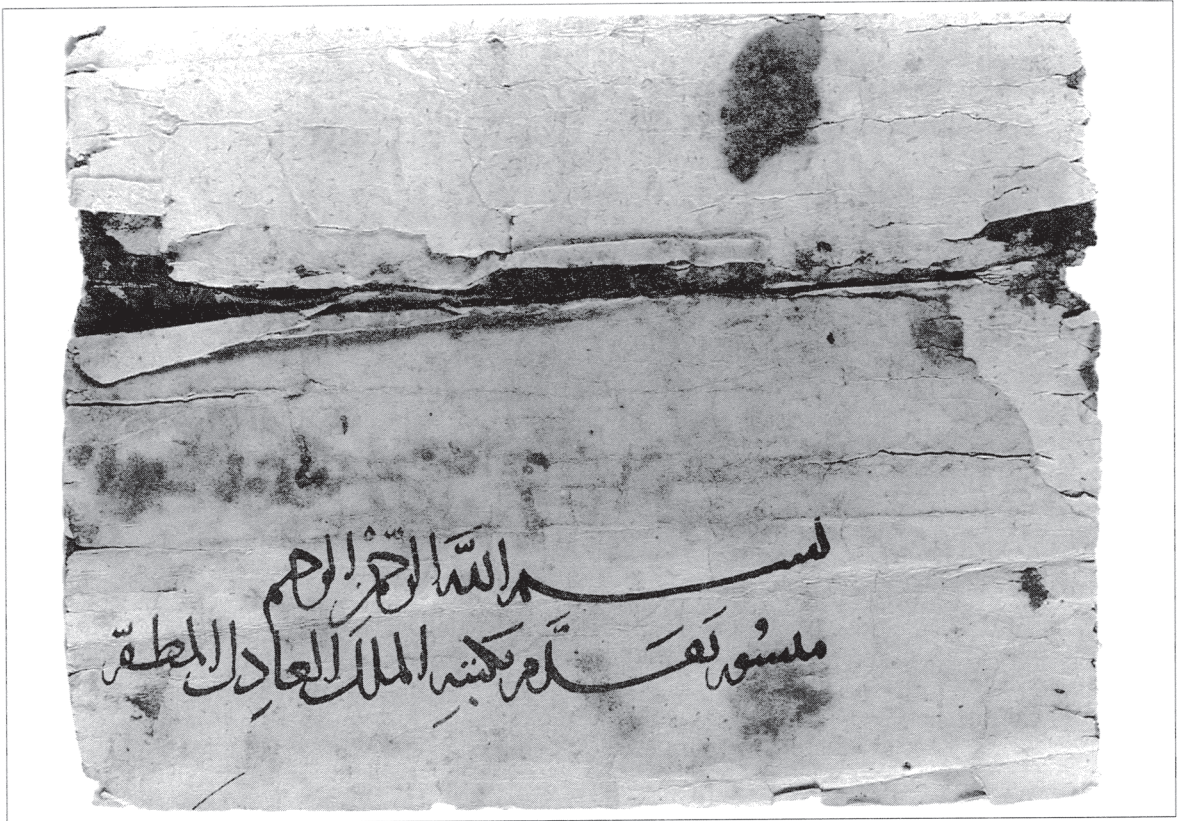 بسم الله الرَّحْمٰن الرحيم
منشور تَقَدَّم بكتبهِ الملك العادل المظفّر